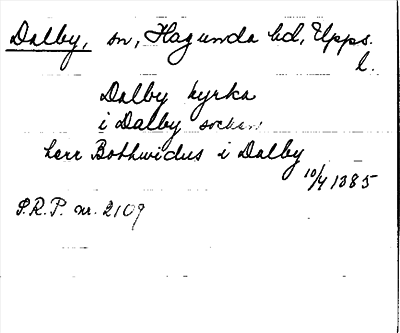 Dalby, sn, Hagunda hd, Upps.
l.
Dalby kyrka
i Dalby socken
herr Bothwidus i Dalby
10/4 1385
S.R.P. nr. 2109